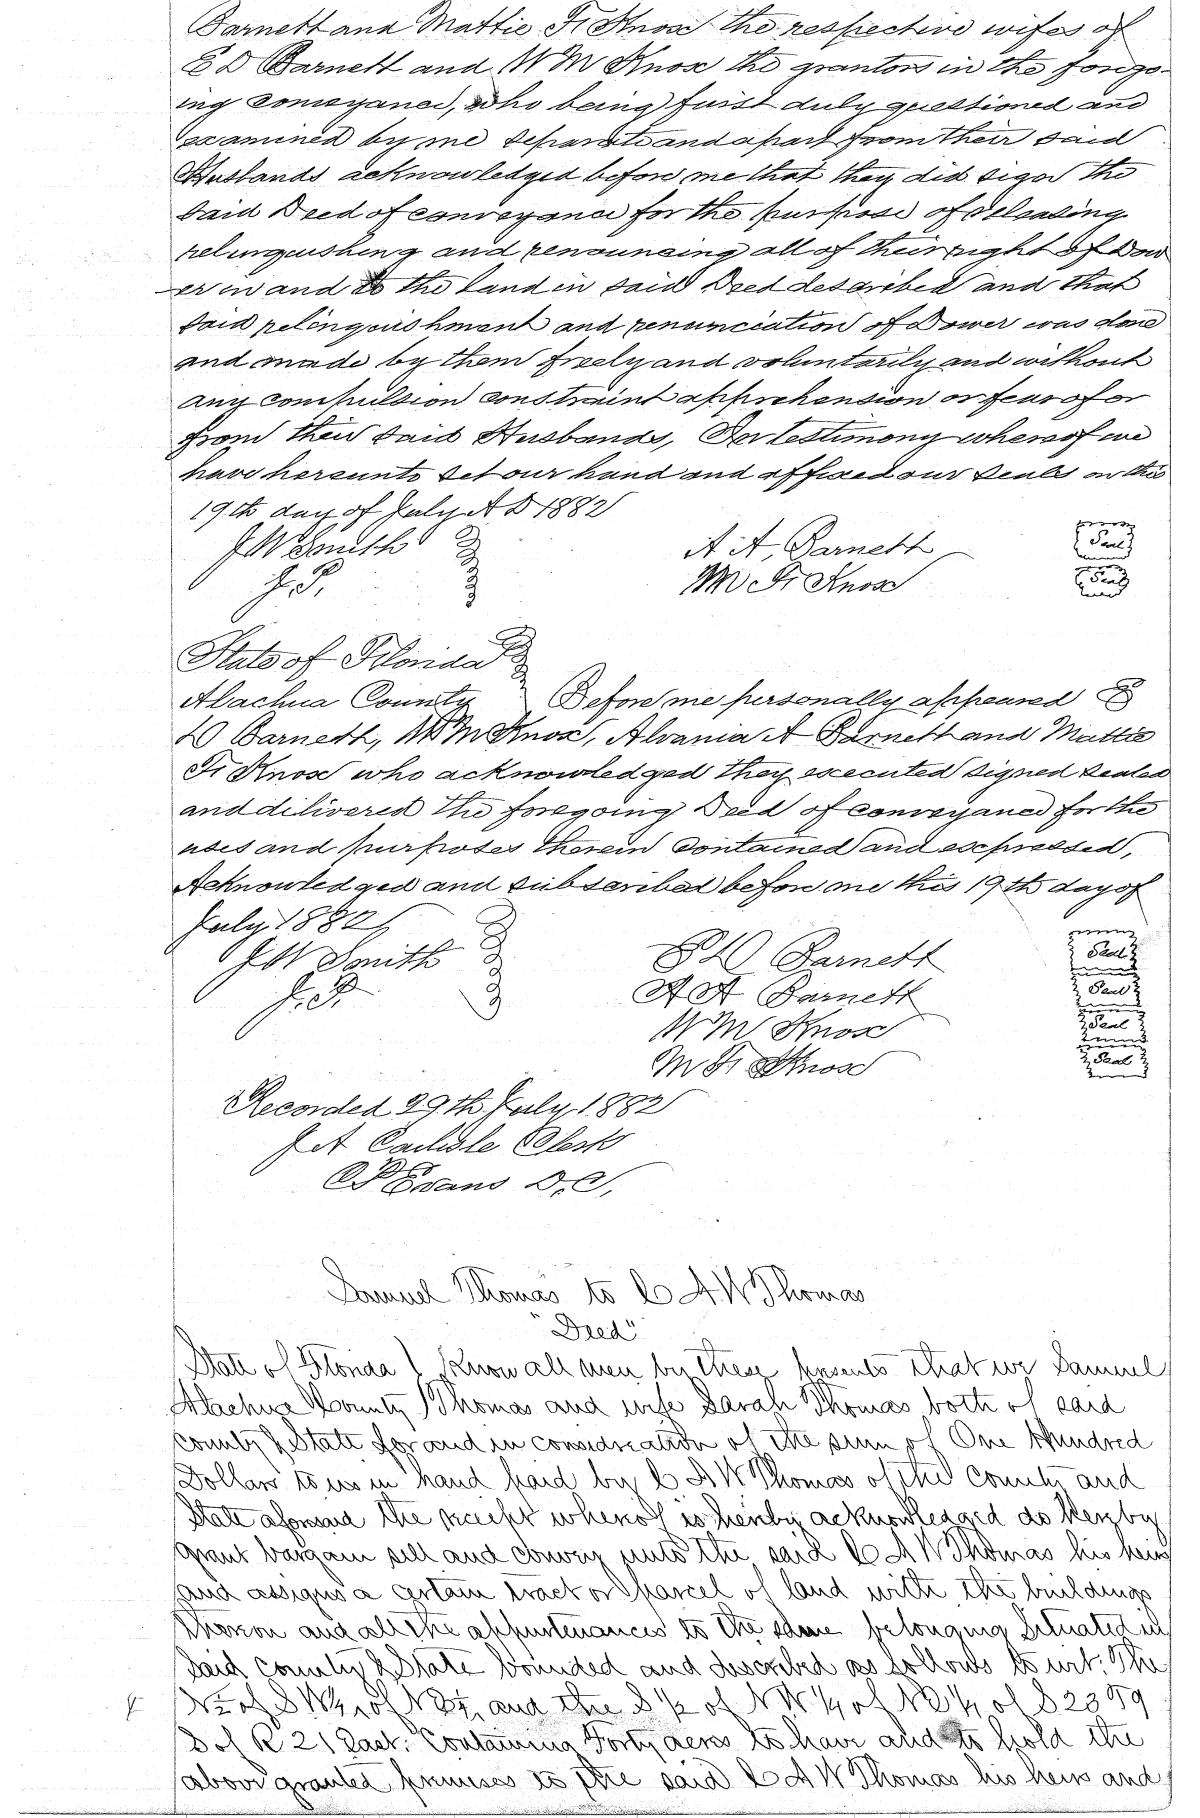 Barnett and Mattie F. Knox the respective wifes of
E D Barnett and W M Knox the grantors in the forego-
ing conveyance, who being first duly questioned and
examined by me separate and apart from their said
Husbands acknowledged before me that they did sign the
said Deed of conveyance for the purpose of releasing
relinquishing and renouncing all of their right of Dow
er in and to the land in said Deed described and that
said relinquishment and renunciation of Dower was done
and made by them freely and voluntarily and without
any compulsion constraint apprehension or fear of or
from their said Husbands, In testimony whereof we
have hereunto set our hand and affixed our seals on this
19th day of July A D 1882
J W Smith A A, Barnett Seal
J. P. M F. Knox Seal
State of Florida
Alachua County Before me personally appeared E
D Barnett, W M Knox, Alvania A Barnett and Mattie
F. Knox who acknowledged they executed signed sealed
and dilivered the foregoing Deed of conveyance for the
uses and purposes therein contained and expressed,
Acknowledged and subscribed before me this 19th day of
July 1882
J W Smith E D Barnett Seal
J. P. A A Barnett Seal
W M Knox Seal
M F. Knox Seal
Recorded 29th July 1882
J A Carlisle Clerk
Evans D. C.
Samuel Thomas to C A W Thomas
"Deed"
State of Florida } Know all men by these presents that we Samuel
Alachua County } Thomas and wife Sarah Thomas both of said
county & State for and in consideration of the sum of One Hundred
Dollars to us in hand paid by C A W Thomas of the county and
State aforesaid the receipt whereof is hereby acknowledged do hereby
grant bargain sell and convey unto the said C A W Thomas his heirs
and assigns a certain tract or parcel of land with the buildings
thereon and all the appurtenances to the same belonging situated in
said county & State bounded and described as follows to wit: The
N ½ of S W ¼ of N E ¼, and the S ½ of N W ¼ of N E ¼ of S 23 T 9
S of R 21 East. Containing Forty acres to have and to hold the
above granted premises to the said C A W Thomas his heirs and